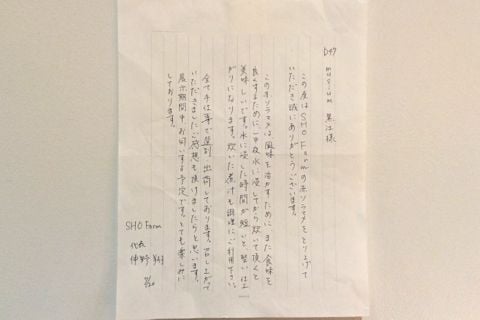 D47 museum 黒江様
この度はSHO Farmのホソラマメをとり上げて
いただき誠にありがとうございます。
このホソラマメは風味を活かすために、また食味を
良くするために、一中夜水に浸してから炊いて頂くと
美味しいです。水に浸した時間が短いと、堅い仕上
がりになります。炊いた煮汁も調理にご利用下さい。
全て手仕事で選別、出荷しております。召し上がって
いただきましたご感想も頂けましたらと思います。
展示期間中お伺いする予定です。とても楽しみに
しております。
SHO Farm
代表
仲野 翔
7/20